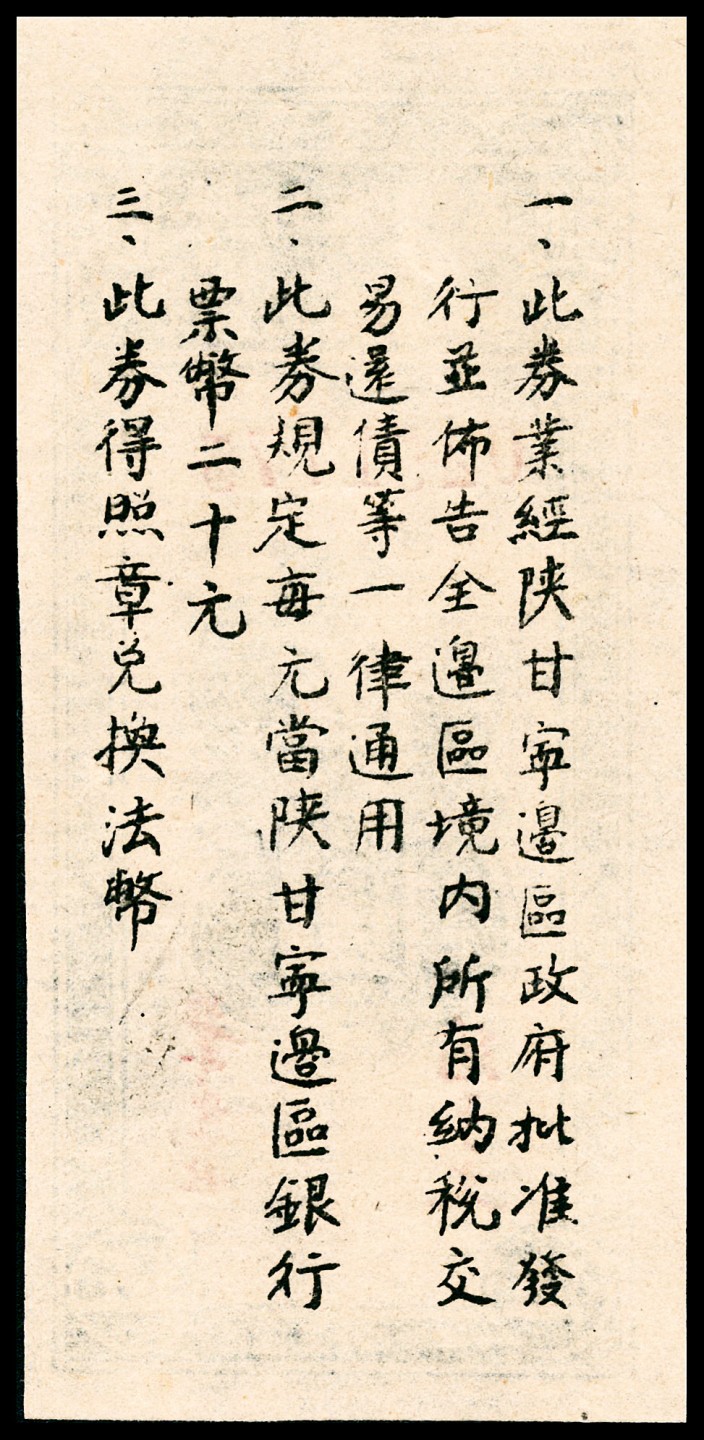 一、此券業經陕甘寧邊區政府批准發
行並佈告全邊區境内所有納税交
易還債等一律通用
二、此券規定每元當陕甘寧邊區銀行
票幣二十元
三、此券得照章兑換法幣